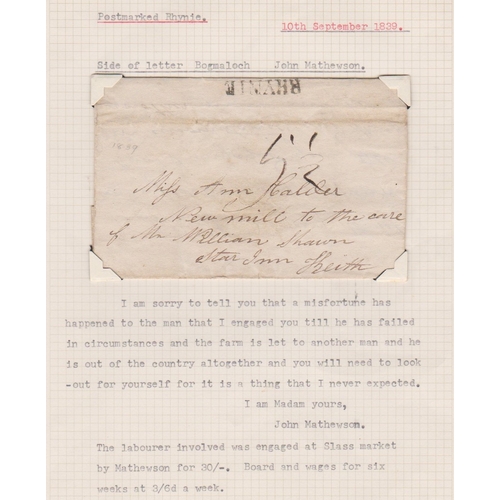 Postmarked Rhynie.
10th September 1839.
Side of letter Bogmaloch John Mathewson.
RHYNIE
1839
Miss Ann Calder
New mill to the care
of Mr William Shawn
Star Inn Keith
I am sorry to tell you that a misfortune has
happened to the man that I engaged you till he has failed
in circumstances and the farm is let to another man and he
is out of the country altogether and you will need to look
-out for yourself for it is a thing that I never expected.
I am Madam yours,
John Mathewson.
The labourer involved was engaged at Slass market
by Mathewson for 30/-. Board and wages for six
weeks at 3/6d a week.